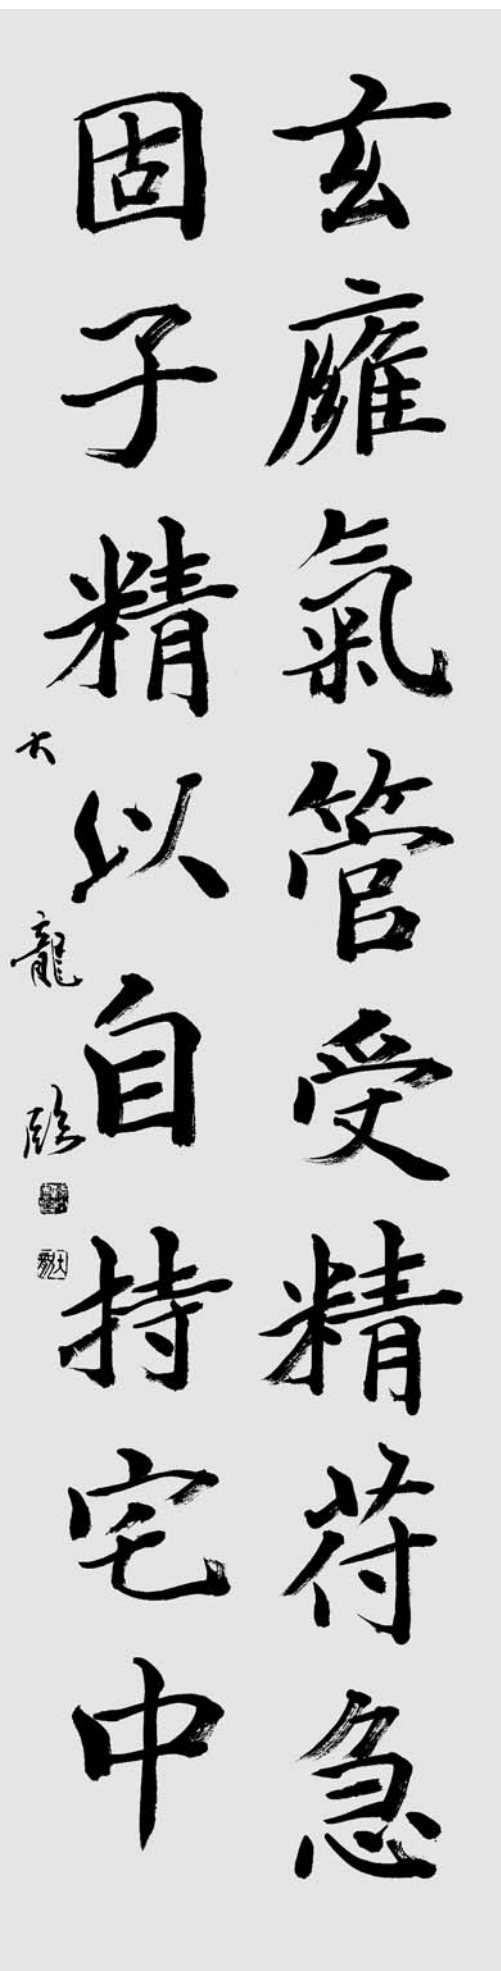 玄膺氣管受精苻急
固子精以自持宅中
大龍臨